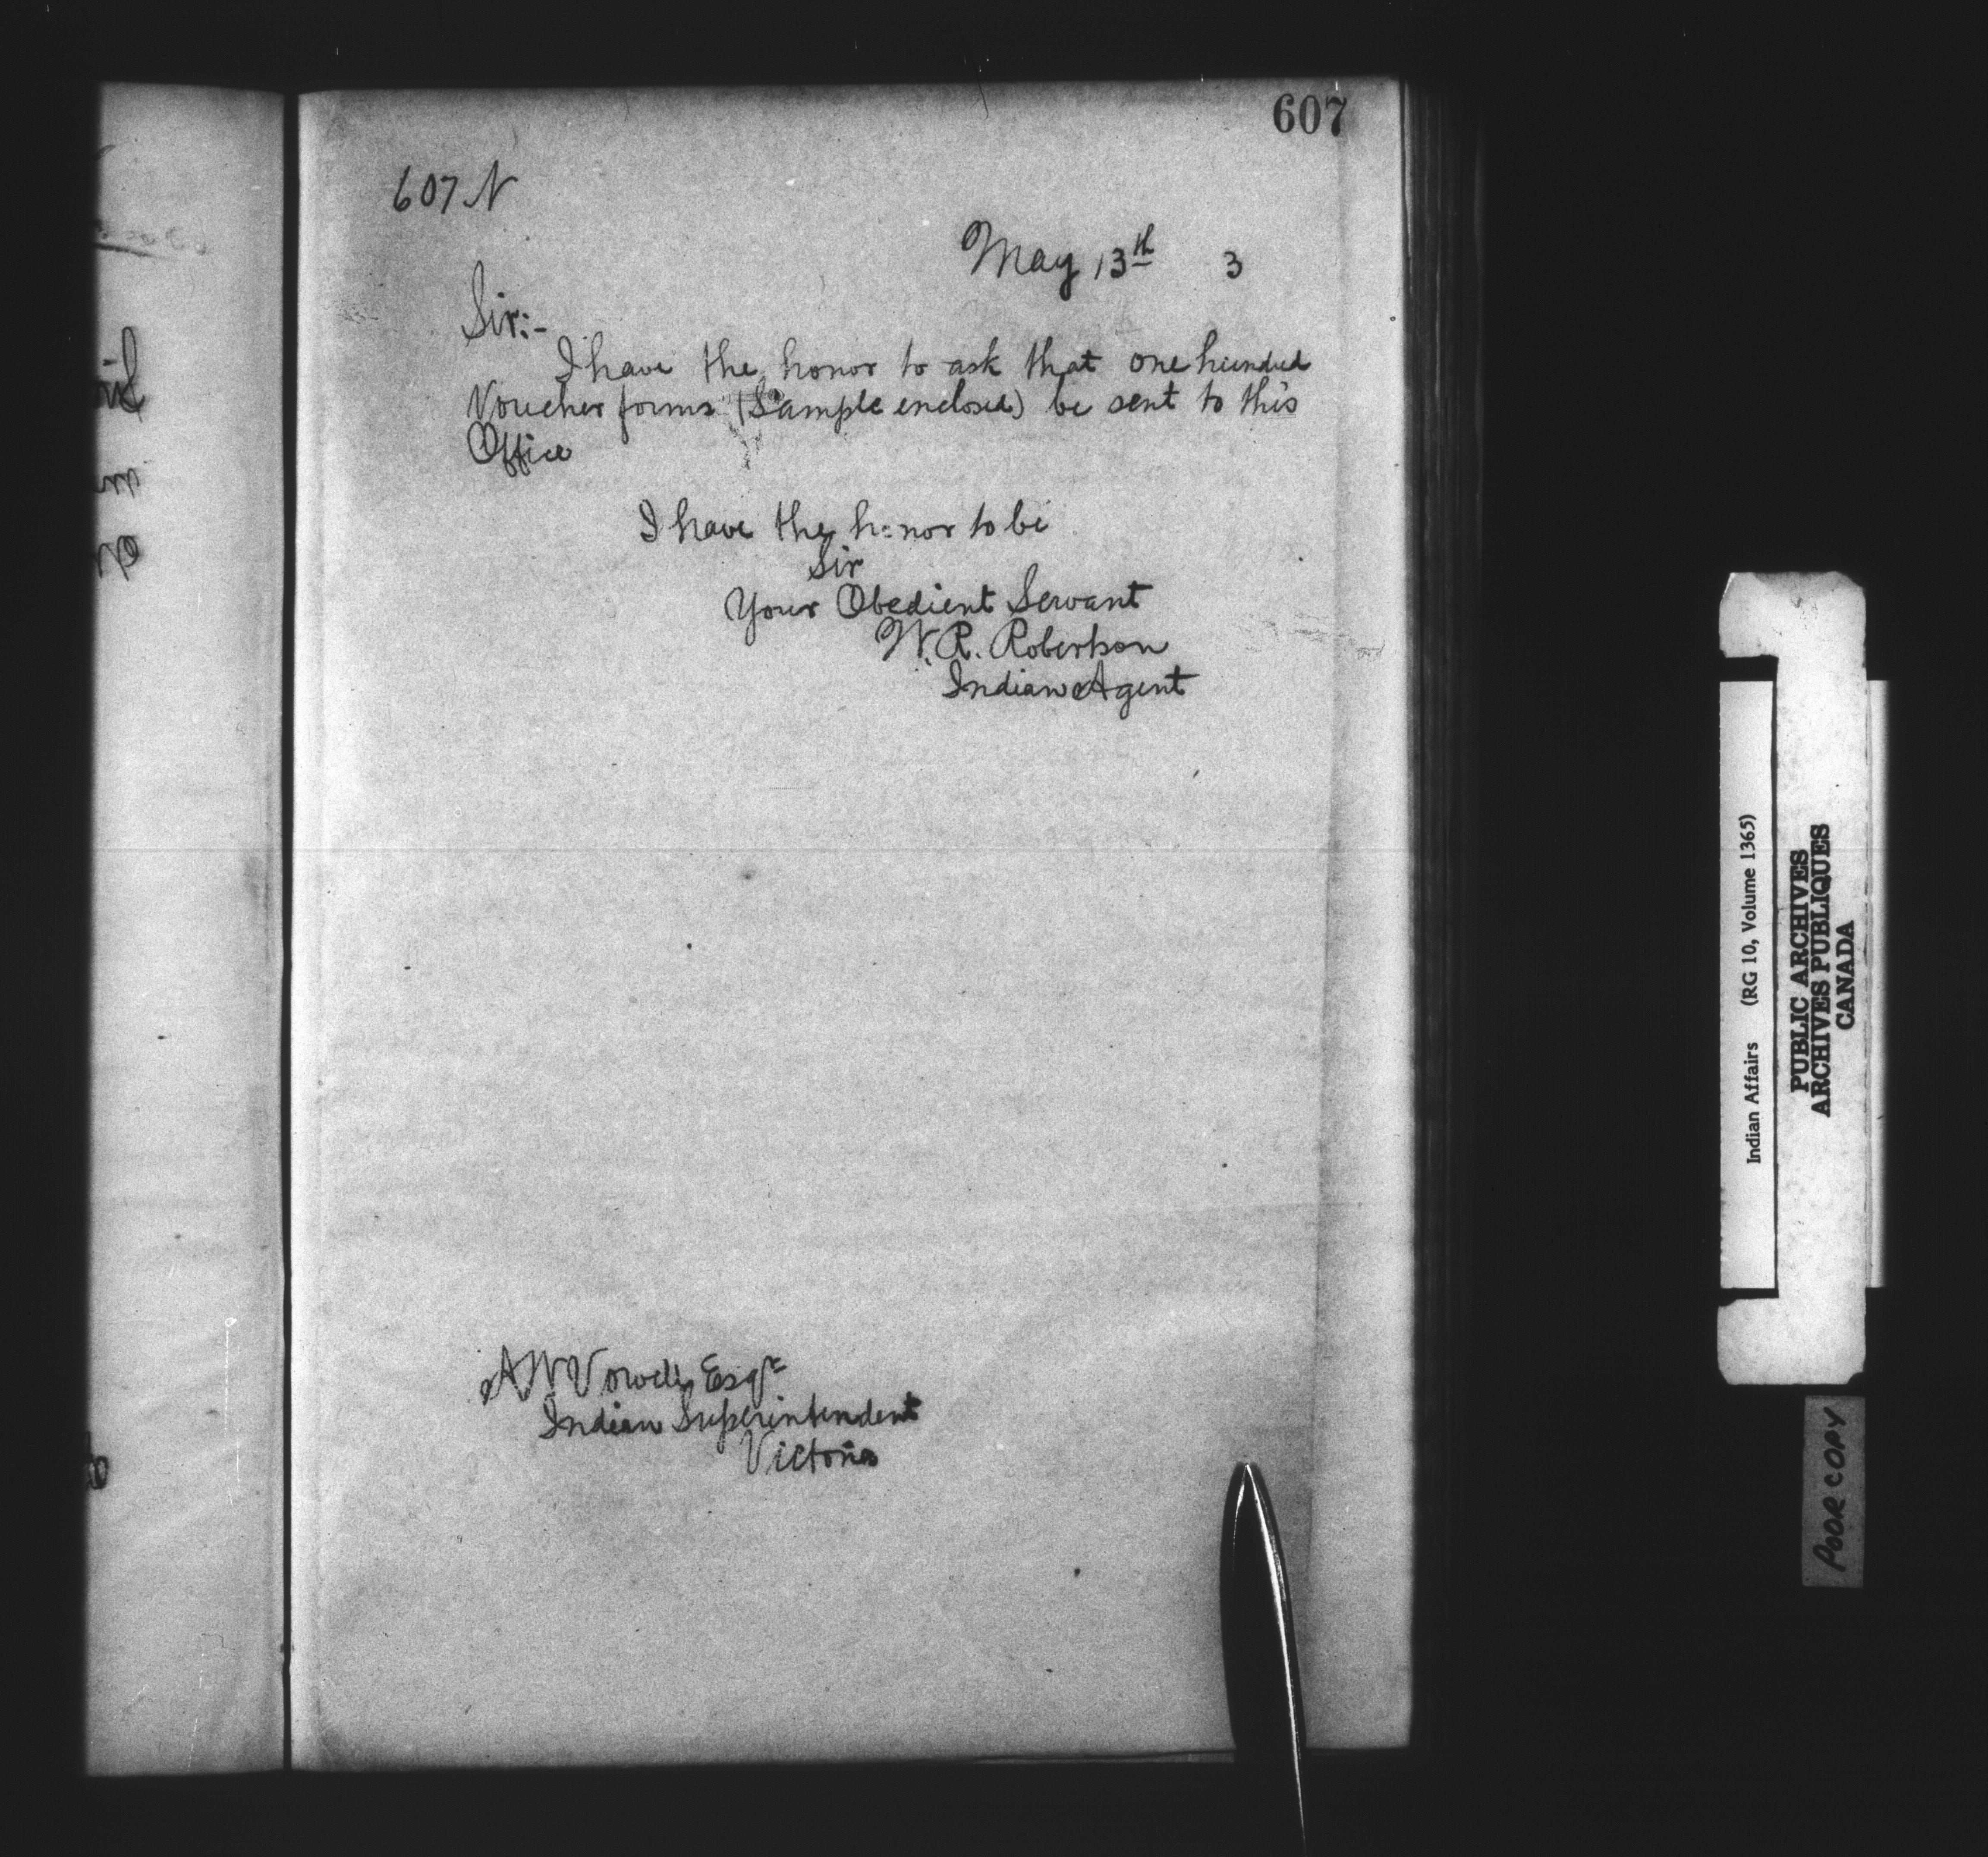 607
607 N
May 13th 3
Sir:-
I have the honor to ask that one hundred
Voucher forms (Sample enclosed) be sent to this
Office
I have the honor to be
Sir
Your Obedient Servant
W. R. Robertson
Indian Agent
A W Vowell Esqre
Indian Superintendent
Victoria
Indian Affairs (RG 10, Volume 1365)
PUBLIC ARCHIVES
ARCHIVES PUBLIQUES
CANADA
POOR COPY